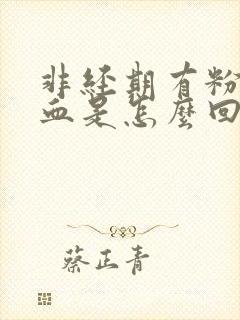 非经期有粉
血是怎麽回
蔡正青